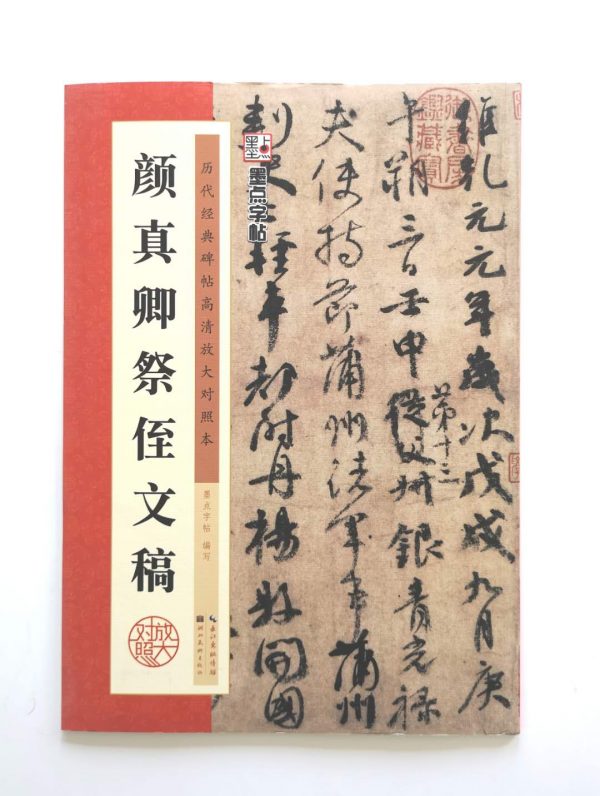 颜真卿祭侄文稿
历代经典碑帖高清放大对照本
墨点字帖 编写
放大
对照
长江出版传媒
湖北美术出版社
墨点
墨点字帖
维乾元元年岁次戊戌九月庚
午朔三日壬申第十三從父州銀青光禄
夫使持節蒲州诸軍事蒲州
刺史上輕車都尉丹楊縣開國